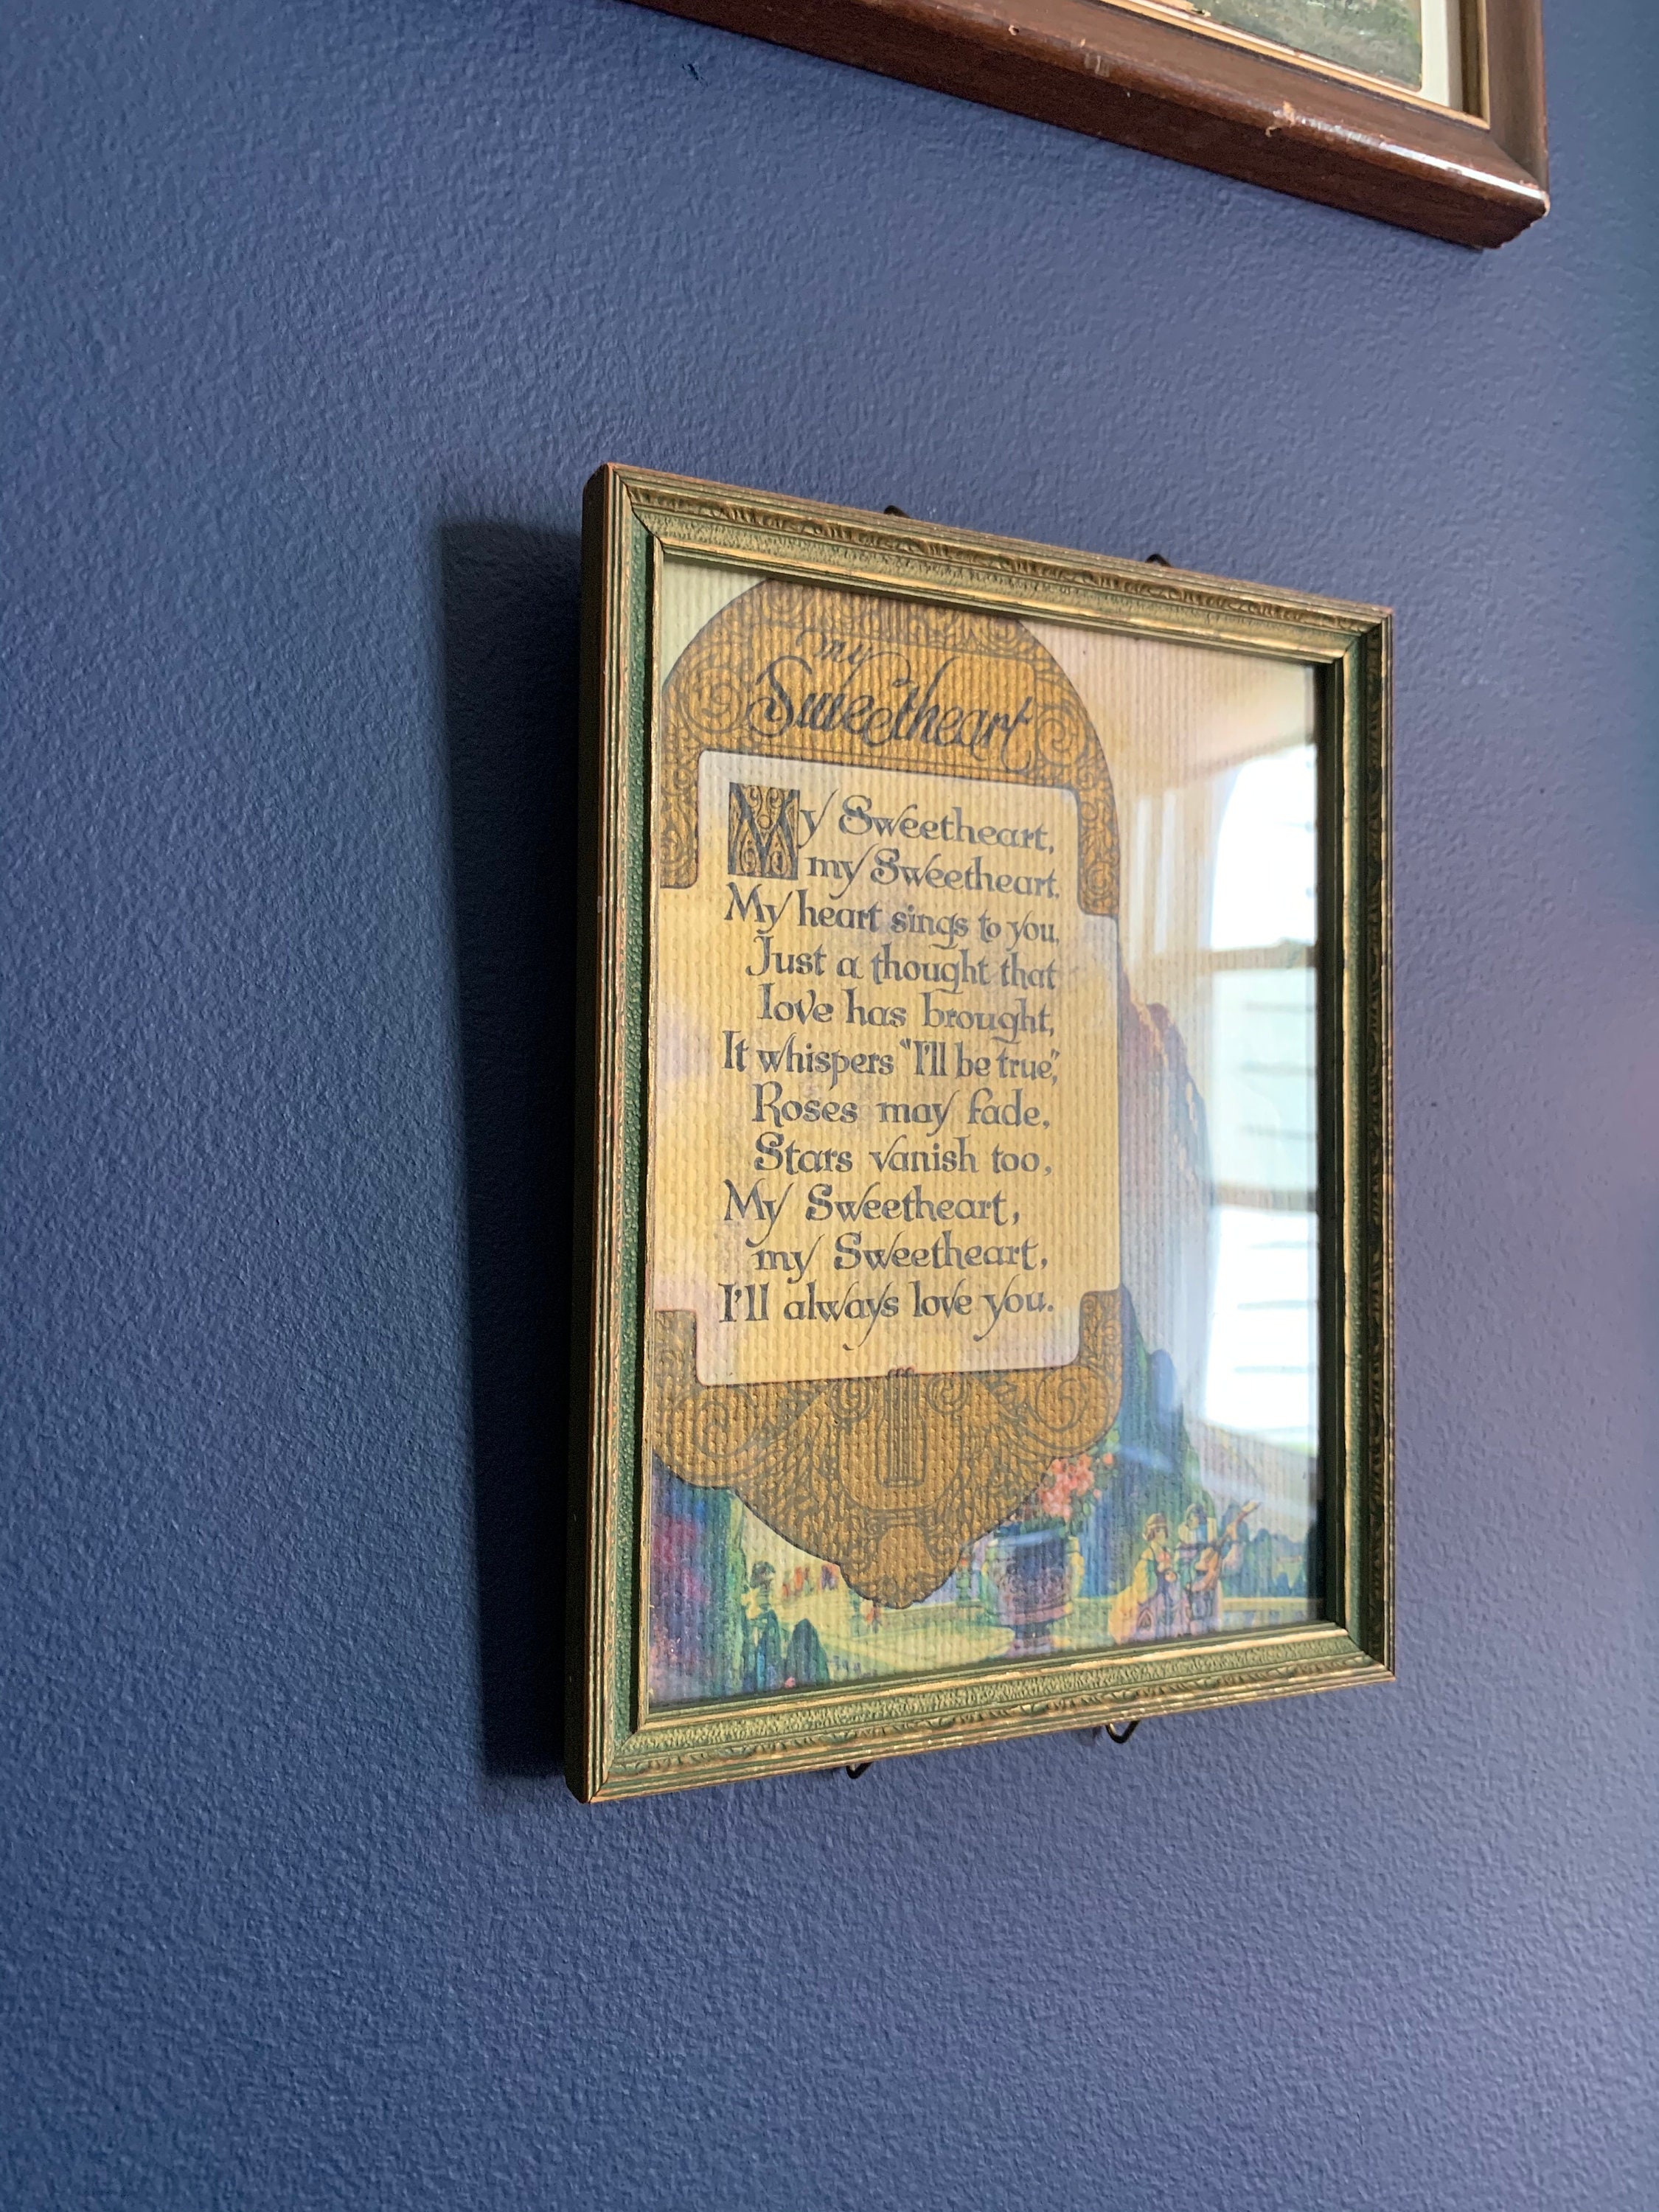 my
Sweetheart
My Sweetheart,
my Sweetheart.
My heart sings to you,
Just a thought that
love has brought,
It whispers "I'll be true",
Roses may fade,
Stars vanish too,
My Sweetheart,
my Sweetheart,
I'll always love you.